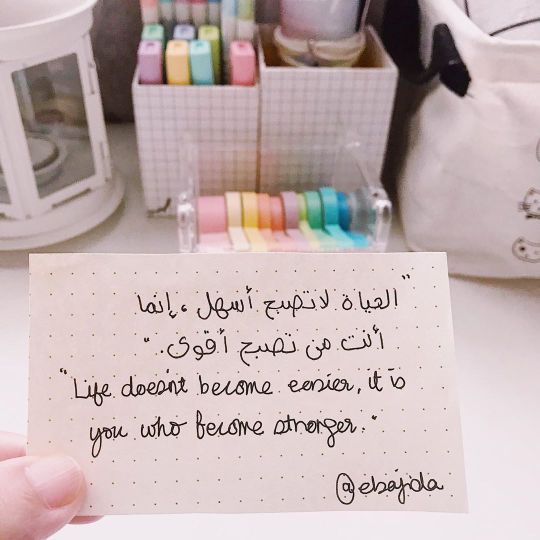 "الحياة لا تصبح أسهل، إنما
أنت من تصبح أقوى."
"Life doesn't become easier, it is
you who become stronger."
@ebajda